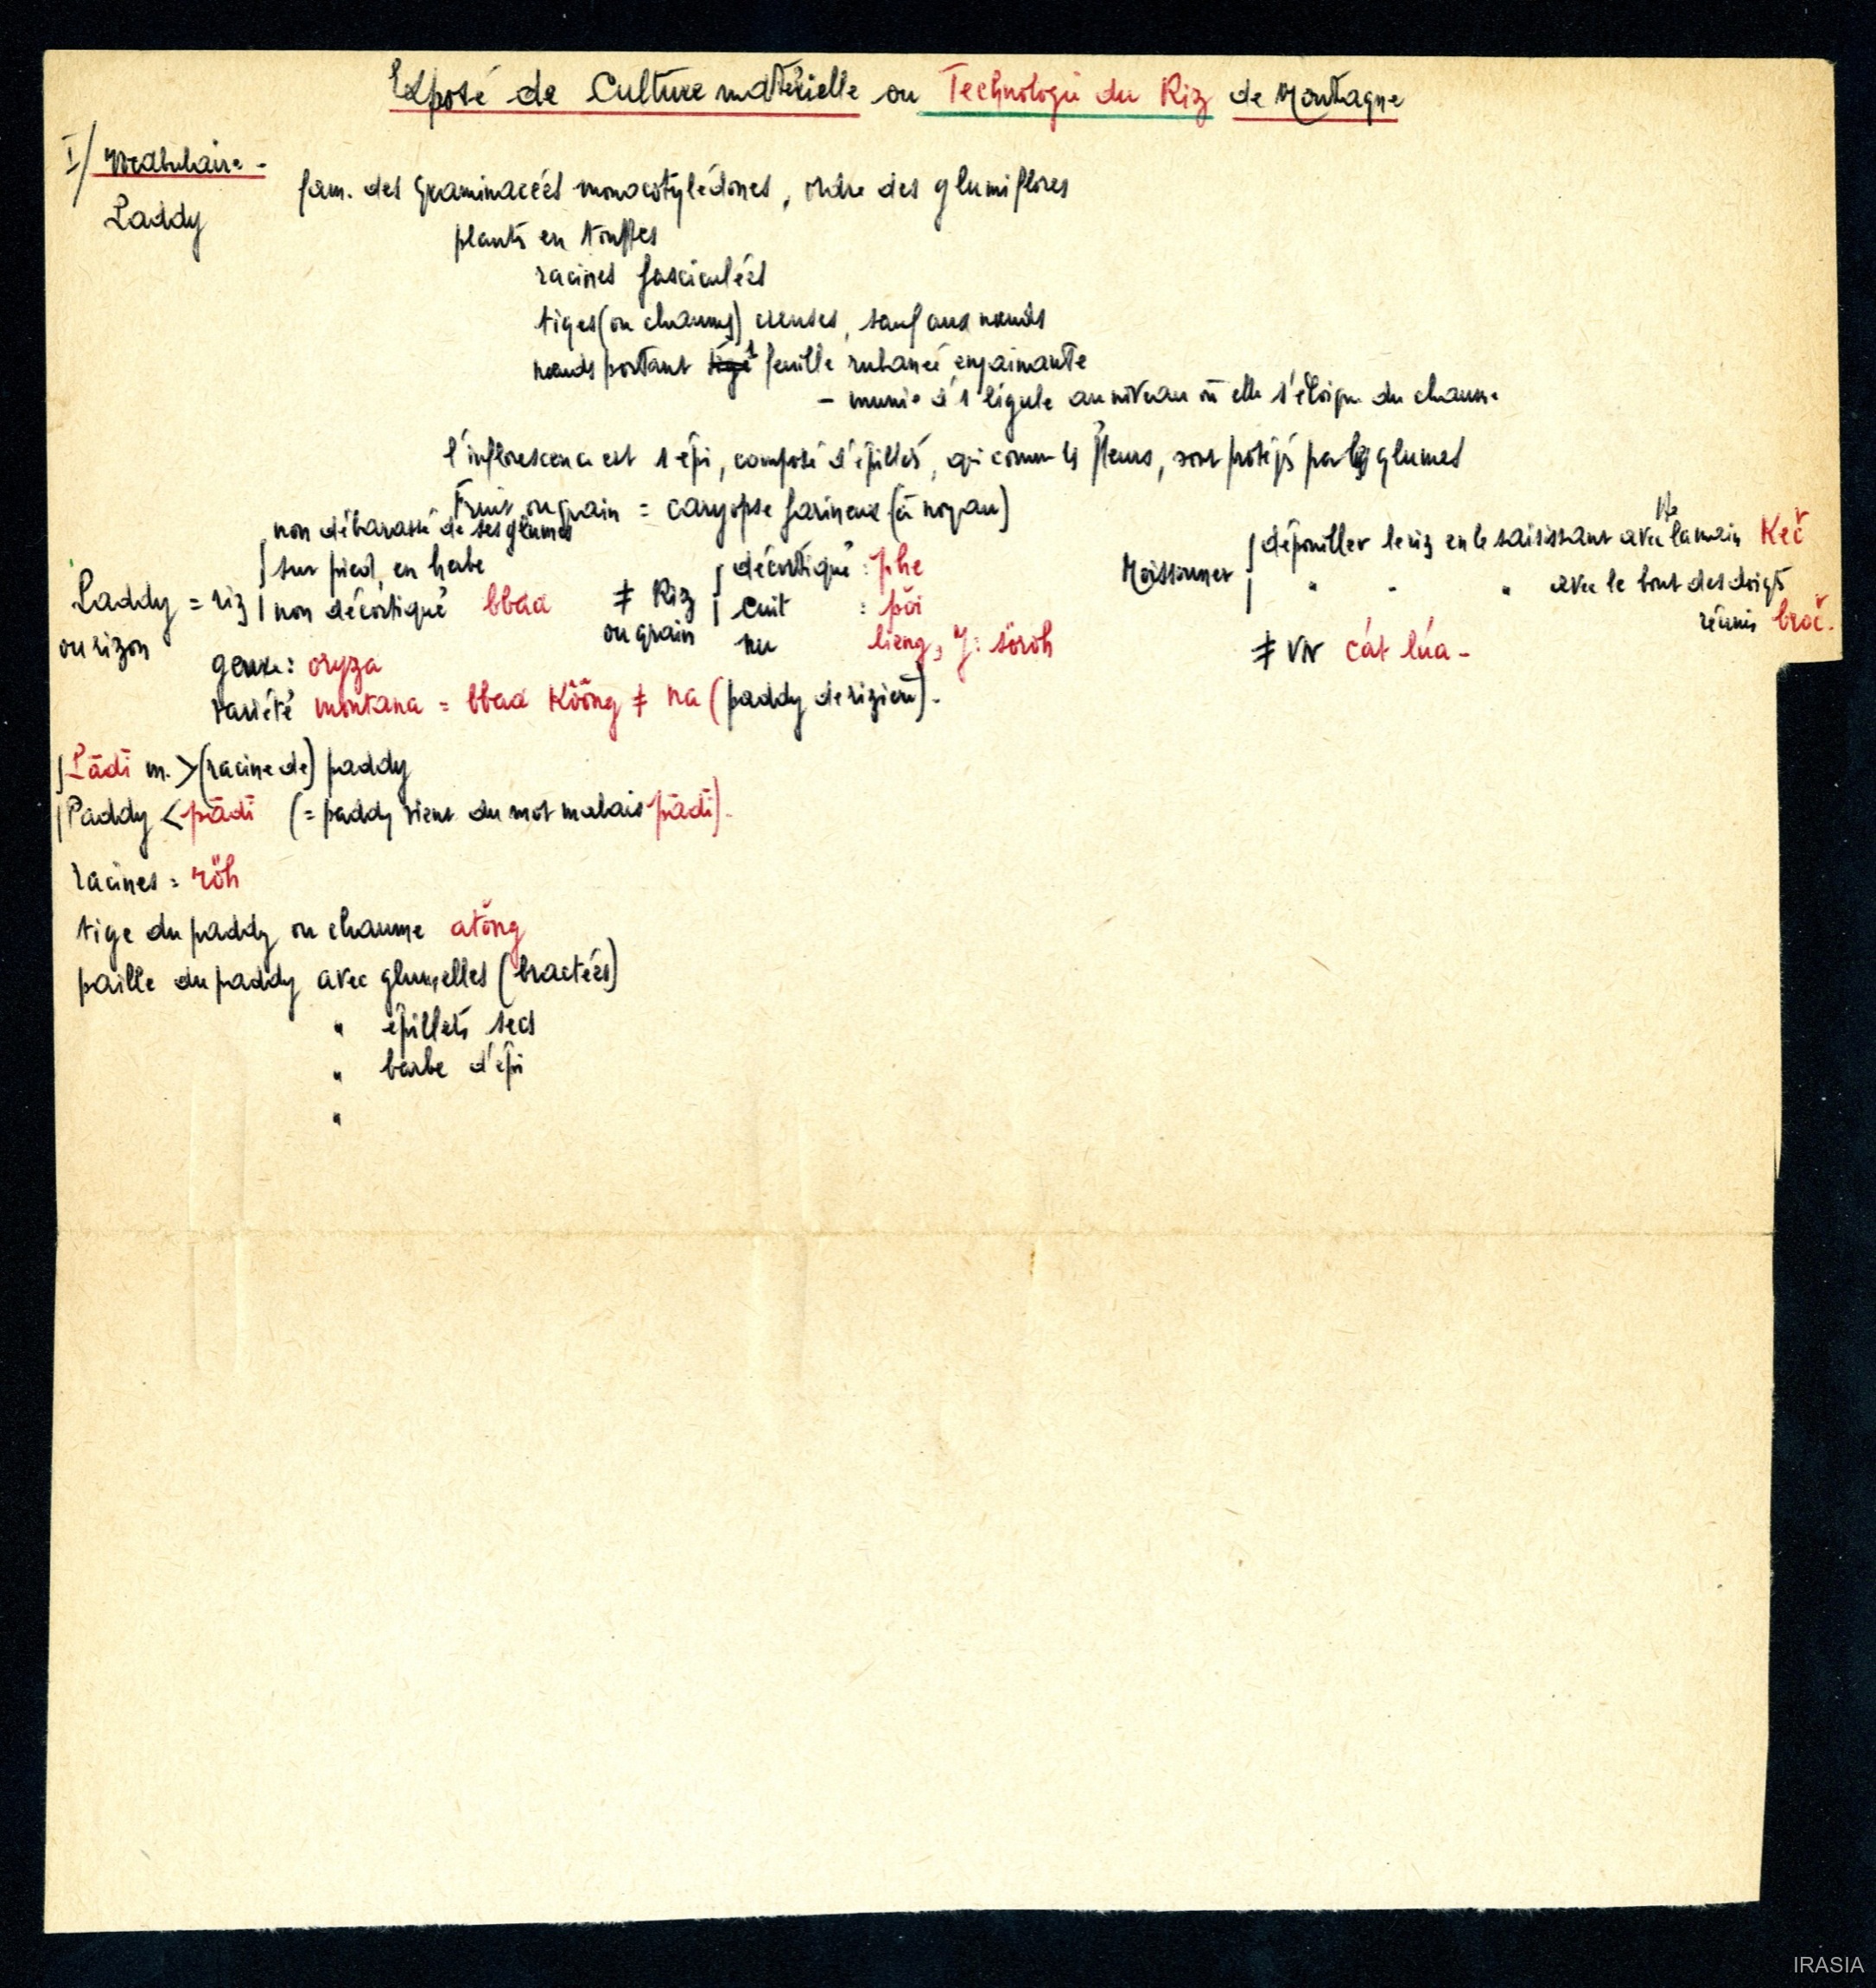 Exposé de Culture matérielle ou Technologie du Riz de Montagne
I/ Vocabulaire -
Paddy
fam. des graminacées monocotylédones, ordre des glumiflores
plants en touffes
racines fasciculées
tiges (ou chaumes) creuses, sauf aux nœuds
nœuds portant 1 feuille rubanée, engainante
- munie d'1 ligule au niveau où elle s'éloigne du chaume
l'inflorescence est 1 épi, composé d'épillets, qui comme les fleurs, sont protégés par les glumes
Fruit ou grain = caryopse farineux (à noyau)
Paddy = riz
ou rizon
non débarassé de ses glumes
sur pied, en herbe
non décortiqué bbaa
≠ Riz
ou grain
décortiqué : phe
cuit : pöi
nu lieng, J: söroh
Moissonner
dépouiller le riz en le saisissant avec la main Keč
" " " avec le bout des doigts
réunis broč.
≠ VN cát lúa -
genre : oryza
variété montana = bbaa Köông ≠ na (paddy de rizière).
Pādi m. > (racine de) paddy
Paddy < pādi (= paddy vient du mot malais pādi).
racines = röh
tige du paddy ou chaume atŏng
paille du paddy avec glumelles (bractées)
" épillets secs
" barbe d'épi
"
IRASIA